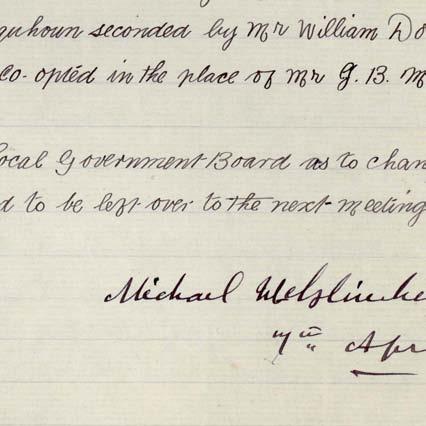 quhoun seconded by Mr William Do
co-opted in the place of Mr G. B. M
ocal Government Board as to chan
d to be left over to the next meeting
Michael
7th Apr